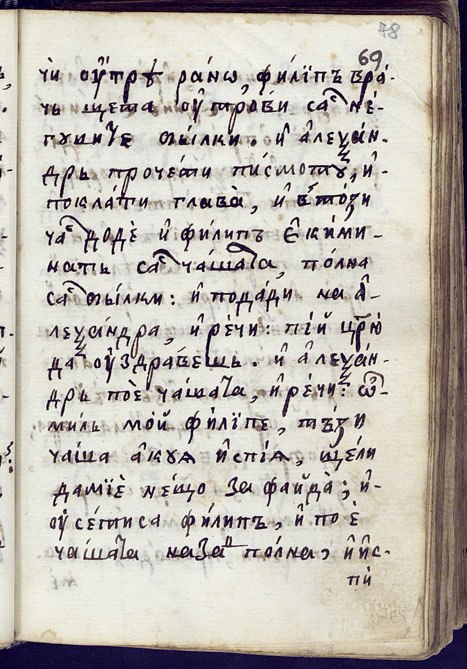 78
69
чи ѹ҆трѣ ра́нѡ, фили́пъ вра́-
чь щета ѹ҆трови саⷭ҇ не́-
гуните би́лки. и҆ а҆леѯа́н-
дръ прочети писмото, и҆-
поклати глава̀, и҆ втози
чаⷭ҇ дойдѐ и҆ фили́пъ є҆ки́ми-
нать саⷭ҇ ча́шата, по́лна
саⷭ҇ би́лки: и҆ пода́ди на а҆-
леѯа́ндра, и҆ ре́чи: пі́й цр҃ю
да ѹ҆здра́вешь. и҆ а҆леѯа́н-
дръ поѐ ча́шата, и҆ ре́чи: ѽ-
миль мо́й фили́пе, тъ́зи
ча́ша а҆куѧ и҆спі́ѧ, ще́ли
даміѐ не́що за файда̀; и҆-
ѹ҆се́тиса фили́пъ, и҆ поѐ
ча́шата назаⷣ по́лна, и҆ и҆с-
пи́